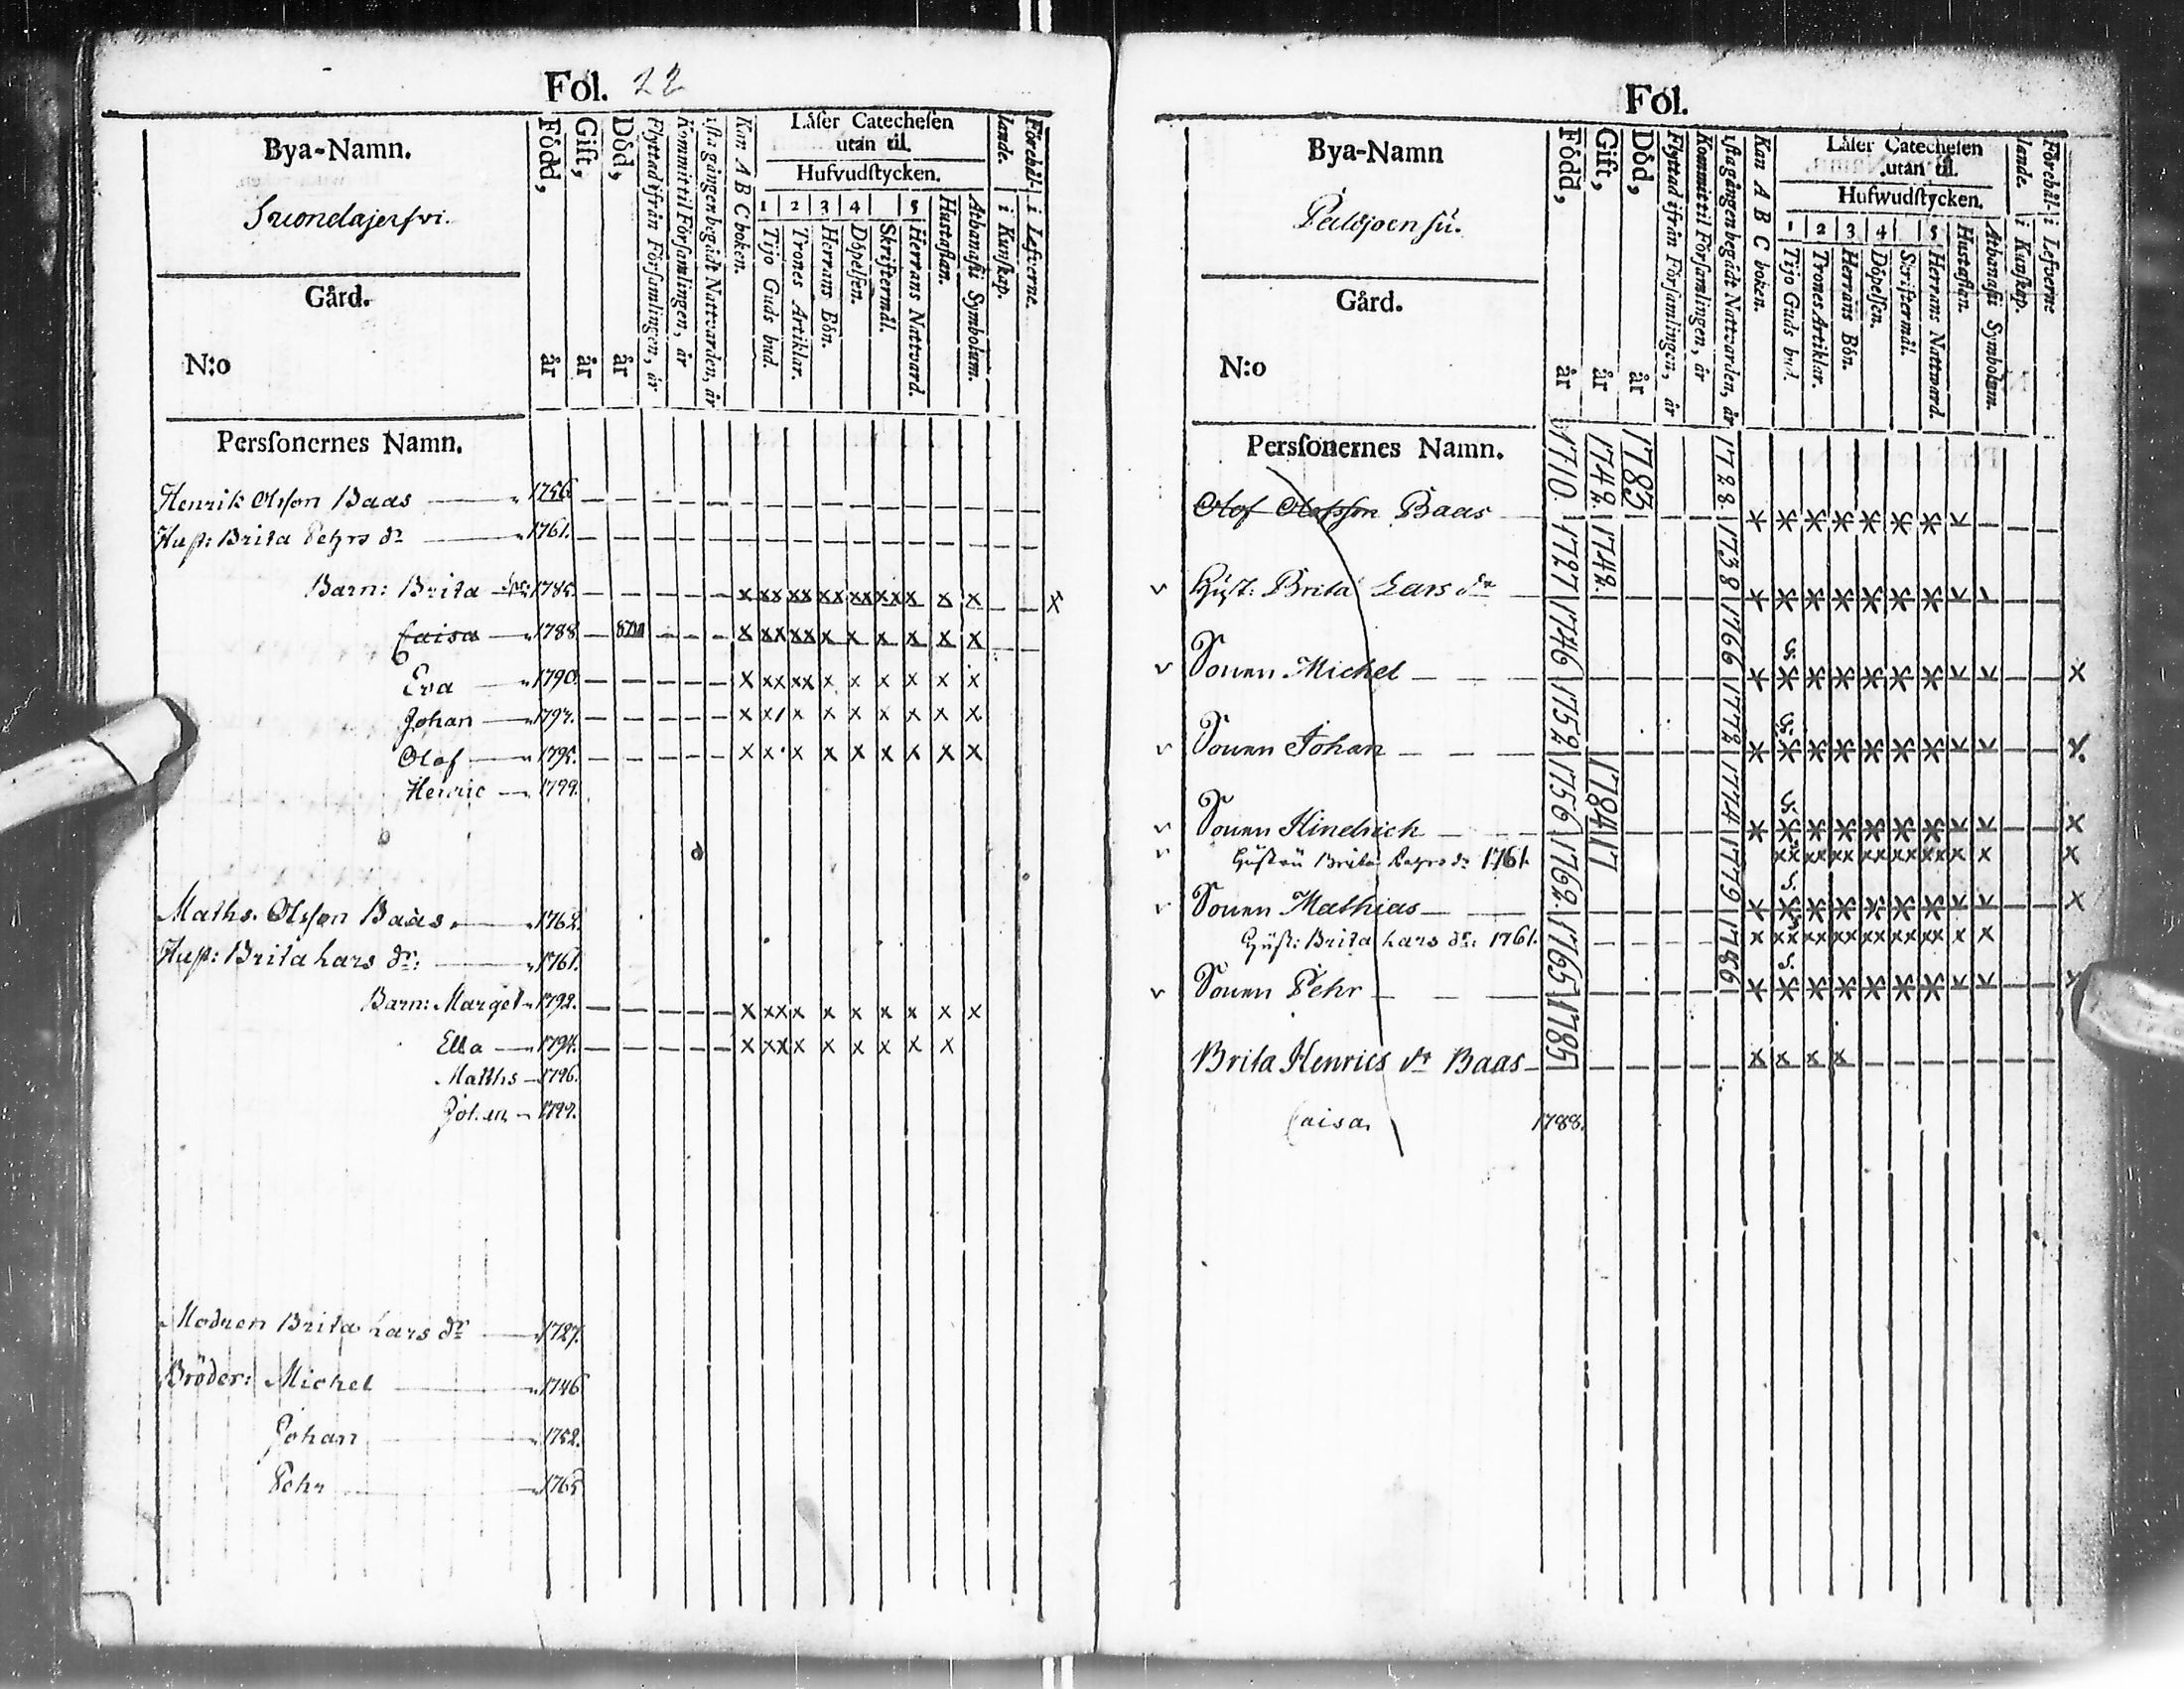 Fol. 22
Bya-Namn.
Suondajerfvi.
Gård.
N:o
Född, år
Gift, år
Död, år
Flyttad ifrån Församlingen, år
Kommit til Församlingen, år
ista gången begådt Nattvarden, år
Kan A B C boken.
Låser Catechesen utan til.
Hufvudstycken.
1 2 3 4 5
Tijo Guds bud.
Trones Artiklar.
Herrans Bön.
Döpelsen.
Skriftermål.
Herrans Nattvard.
Hustaflan.
Athanasii Symbolum.
Förehållande. i Kunskap. i Lefverne.
Persſonernes Namn.
Henrik Olsson Baas 1756
Hust: Brita Pehrs dr 1761.
Barn: Brita 1785 x xx xx xx xx xx x x x x
Caisa 1788 x xx xx x x x x x x
Eva 1790 x xx xx x x x x x x
Johan 1792. x x x x x x x x x
Olof 1795. x x x x x x x x x
Henric 1799.
Maths. Olsson Baas. 1762.
Hust: Brita Lars dr: 1761.
Barn: Marget 1792. x xx x x x x x x x
Ella 1794. x xx x x x x x x
Matths 1796.
Johan 1799.
Modren Brita Lars dr 1727.
Bröder: Michel 1746
Johan 1752.
Pehr 1765
Fol.
Bya-Namn
Gård.
N:o
Född, år
Gift, år
Död, år
Flyttad ifrån Församlingen, år
Kommit til Församlingen, år
ista gången begådt Nattvarden, år
Kan A B C boken.
Låser Catechesen utan til.
Hufwudstycken.
1 2 3 4 5
Tijo Guds bud.
Trones Artiklar.
Herrans Bön.
Döpelsen.
Scriftermål.
Herrans Nattward.
Hustaflan.
Athanasii Symbolum.
Förehållande. i Kunskap. i Lefverne
Persſonernes Namn.
Olof Olofsson Baas 1710 1742. 1783 1728.
v Hust: Brita Lars dr 1727 1742. 1738
v Sonen Michel 1746 1766 x
v Sonen Johan 1752 1772 x
v Sonen Hindrich 1756 1784 1774 x
v Hustru Brita Pehrs dr 1761. x
v Sonen Mathias 1762. 1779 x
Hust: Brita Lars dr: 1761.
v Sonen Pehr 1765 1786 x
Brita Henrics dr Baas 1785 x x x x
Caisa. 1788.